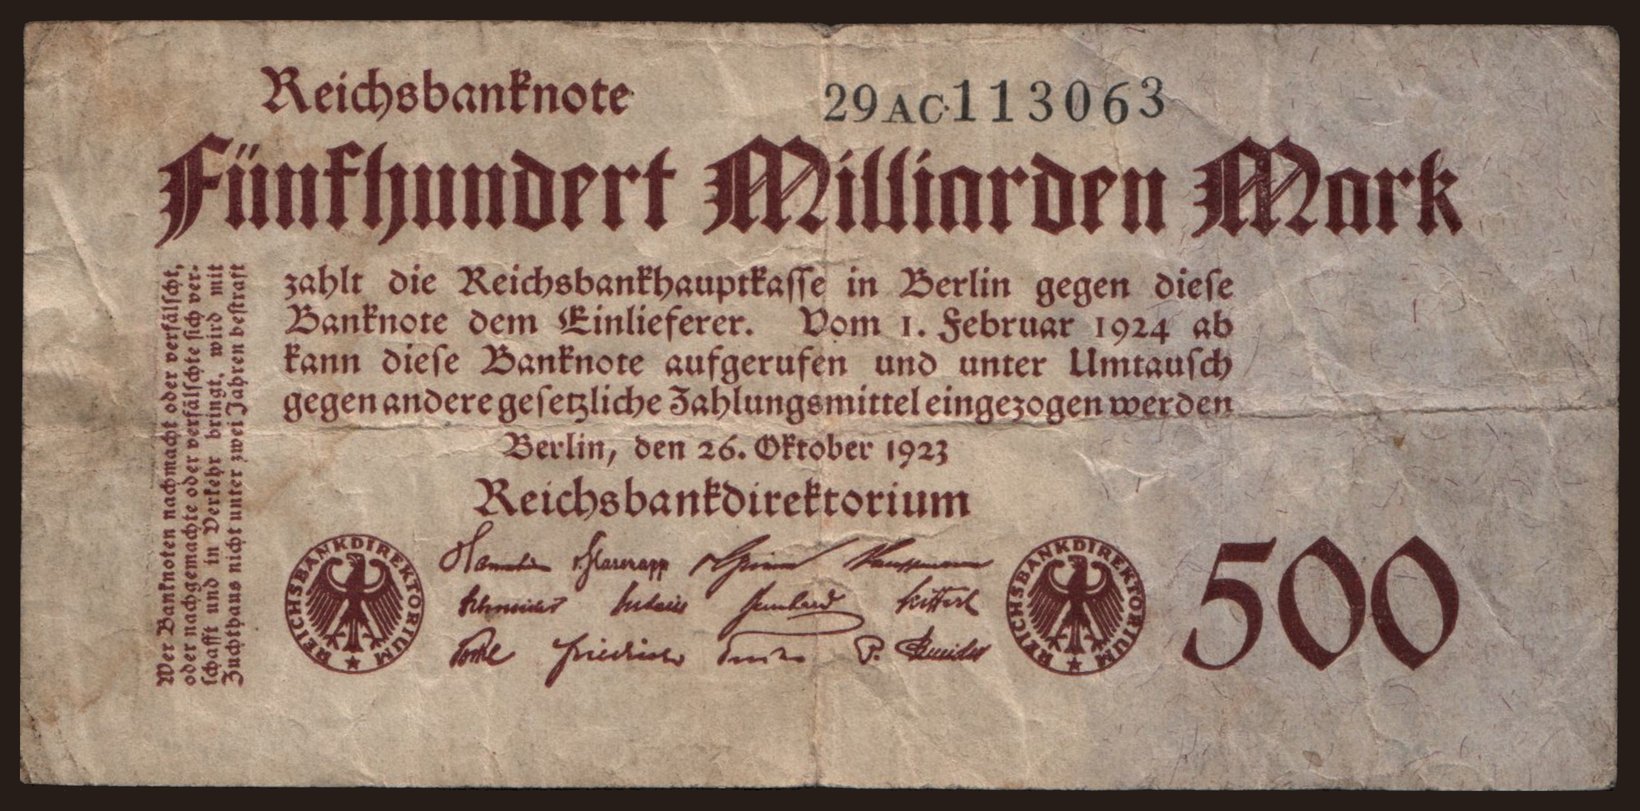 Reichsbanknote
29AC·113063
Fünfhundert Milliarden Mark
zahlt die Reichsbankhauptkasse in Berlin gegen diese
Banknote dem Einlieferer. Vom 1. Februar 1924 ab
kann diese Banknote aufgerufen und unter Umtausch
gegen andere gesetzliche Zahlungsmittel eingezogen werden
Berlin, den 26. Oktober 1923
Reichsbankdirektorium
Wer Banknoten nachmacht oder verfälscht,
oder nachgemachte oder verfälschte sich ver-
schafft und in Verkehr bringt, wird mit
Zuchthaus nicht unter zwei Jahren bestraft
v. Glasenapp
Kauffmann
Schneider
Friedrich
P. Schneider
REICHSBANKDIREKTORIUM
REICHSBANKDIREKTORIUM
500